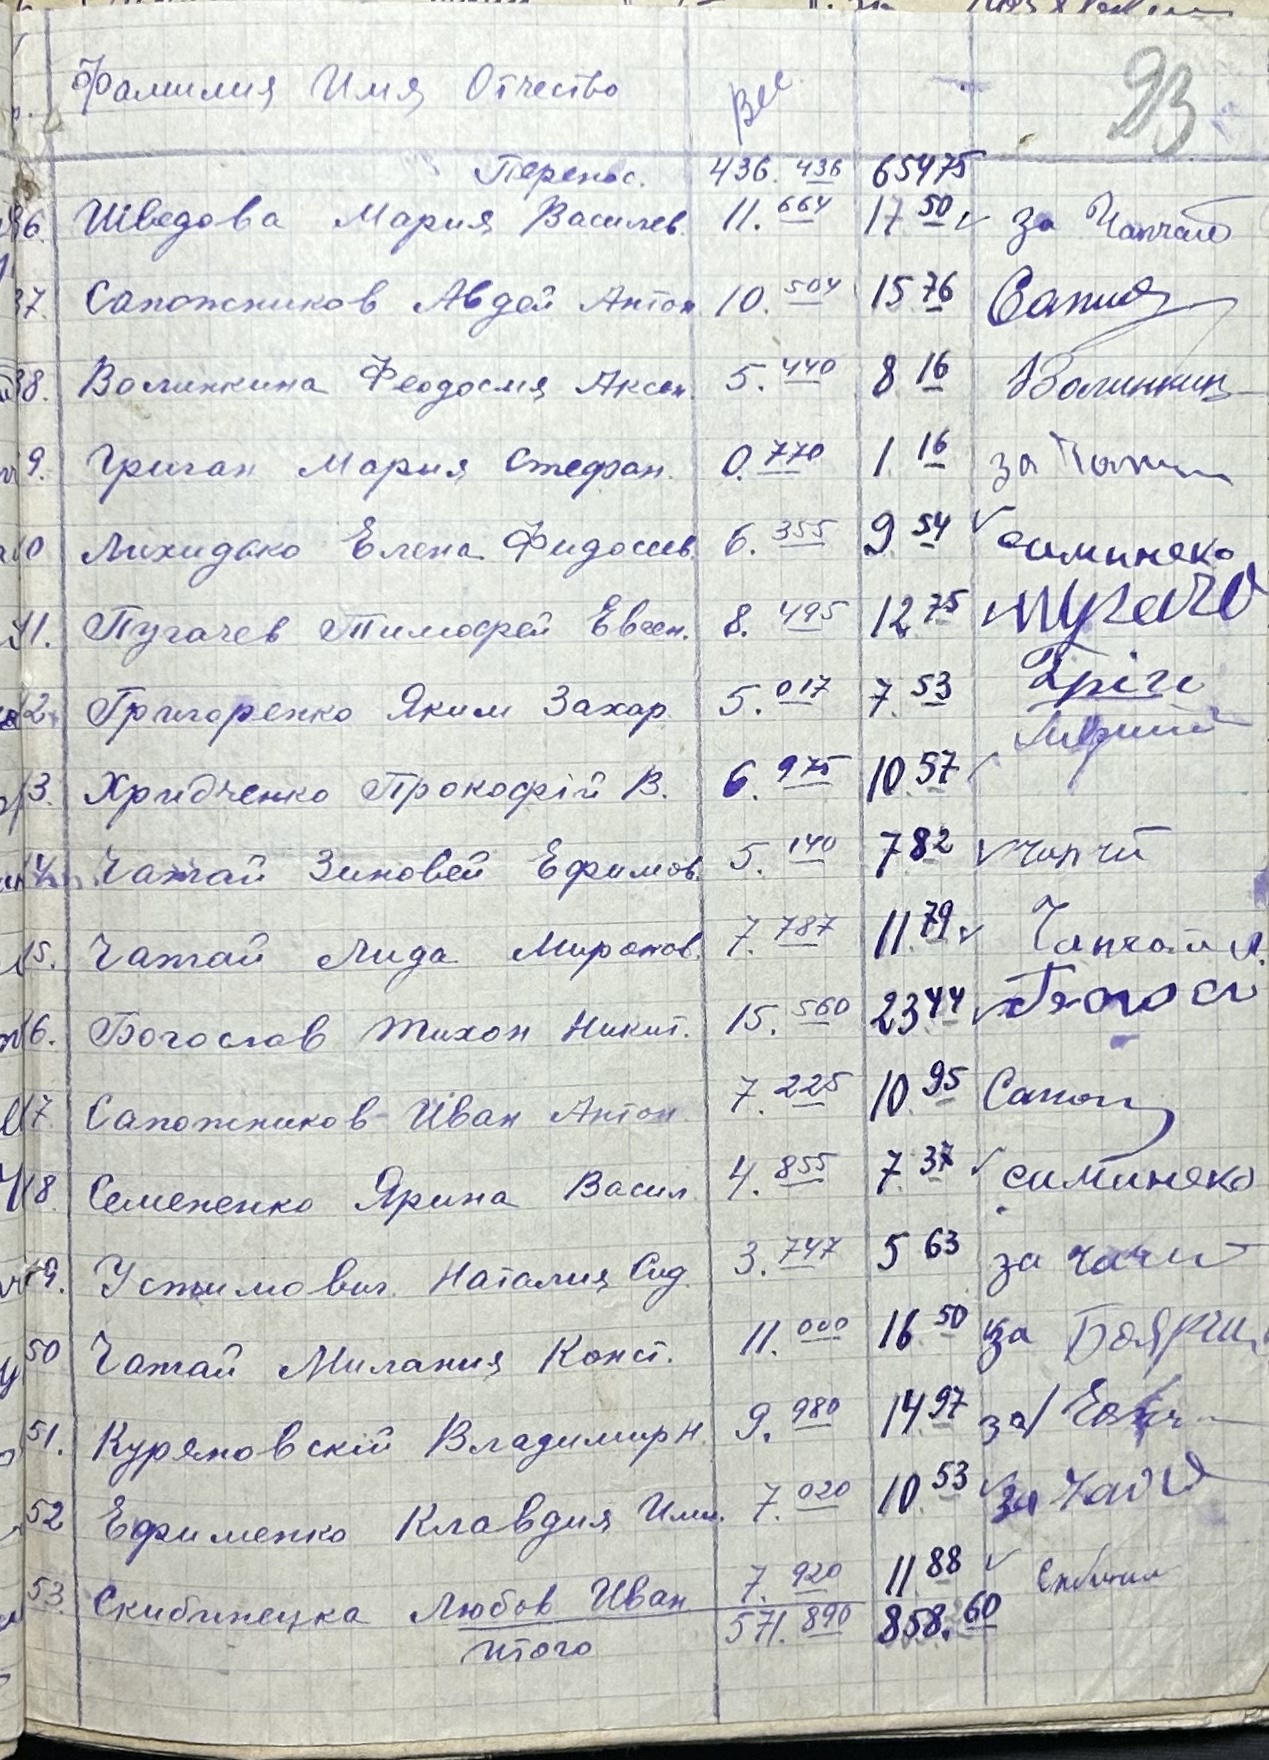 93
Фамилия Имя Отчество Вес
Перенос. 436.436 65475
36. Шведова Мария Василев. 11.664 17 50 за Чапчай
37. Сапожников Авдей Антон 10.504 15 76 Сапож
38. Волинкина Феодосия Аксен. 5.440 8 16 Волинкин
9. Григан Мария Стефан. 0.770 1 16 за
0 Лихидько Елена Фидосиев. 6.355 9 54 симинеко
41. Пугачев Тимофей Евген. 8.495 12 75 Пугачо
2. Григоренко Яким Захар 5.017 7 53 Гріго
3. Хридченко Прокофій В. 6.975 10 57
4. Чапчай Зиновей Ефимов. 5.140 7 82 Чапчй
5. Чапчай Лида Миронов. 7.787 11 79 Чапчай Л.
6. Богослав Тихон Никит. 15.560 23 44 Богосл
7. Сапожников Иван Антон 7.225 10 95 Сапож
48. Семененко Ярина Васил. 4.855 7 37 симинеко
49. Устимович. Наталия Сид. 3.747 5 63 за
50 Чапчай Милания Конст. 11.000 16 50 за
51. Куряновскій Владимир Н. 9.980 14 97 за
52 Ефименко Клавдия 7.020 10 53 за
53. Скибинецка Любов Иван 7.920 11 88
итого 571.890 858.60